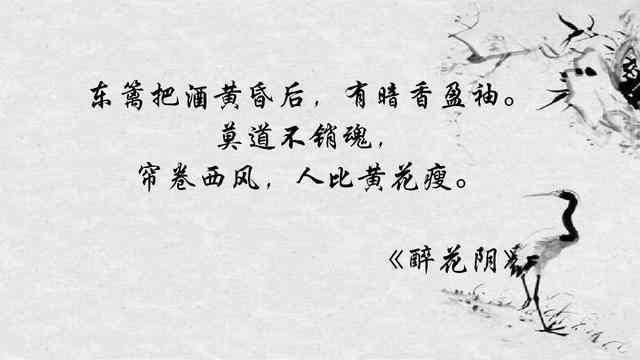 东篱把酒黄昏后，有暗香盈袖。
莫道不销魂，
帘卷西风，人比黄花瘦。
《醉花阴》